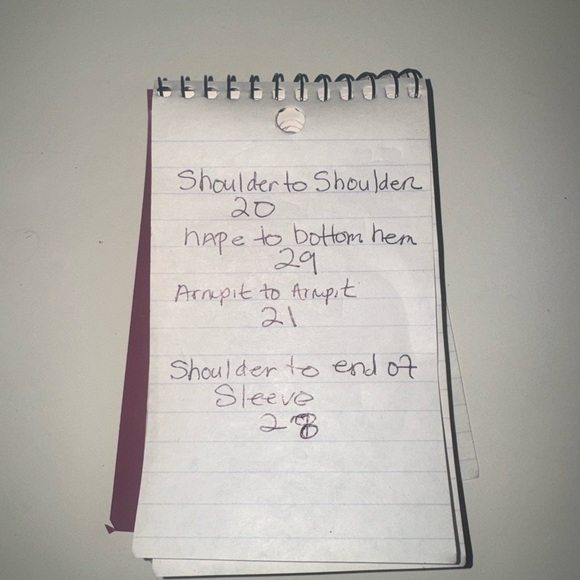 Shoulder to Shoulder
20
nape to bottom hem
29
Armpit to Armpit
21
Shoulder to end of
Sleeve
28